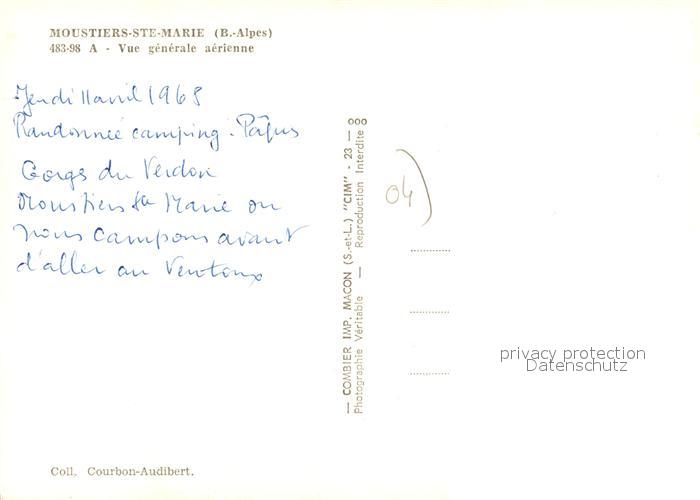 MOUSTIERS-STE-MARIE (B.-Alpes)
483-98 A - Vue générale aérienne
Jeudi 11 avril 1968
Randonnée camping. Pâques
Gorges du Verdon
Moustiers Ste Marie ou
nous campons avant
d'aller au Ventoux
— COMBIER IMP. MACON (S.-et-L.) "CIM" - 23 — ooo
Photographie Véritable — Reproduction Interdite
04)
privacy protection
Datenschutz
Coll. Courbon-Audibert.